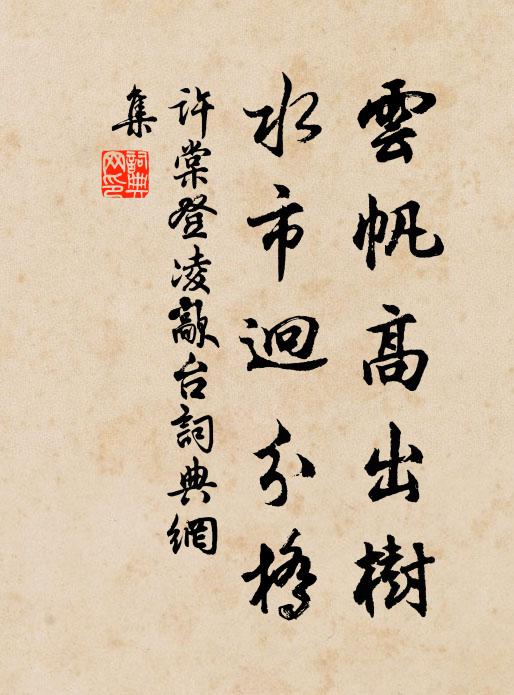 雲帆高出樹
水市迥分橋
許棠登凌歊台詞典網
集
詞典
网印